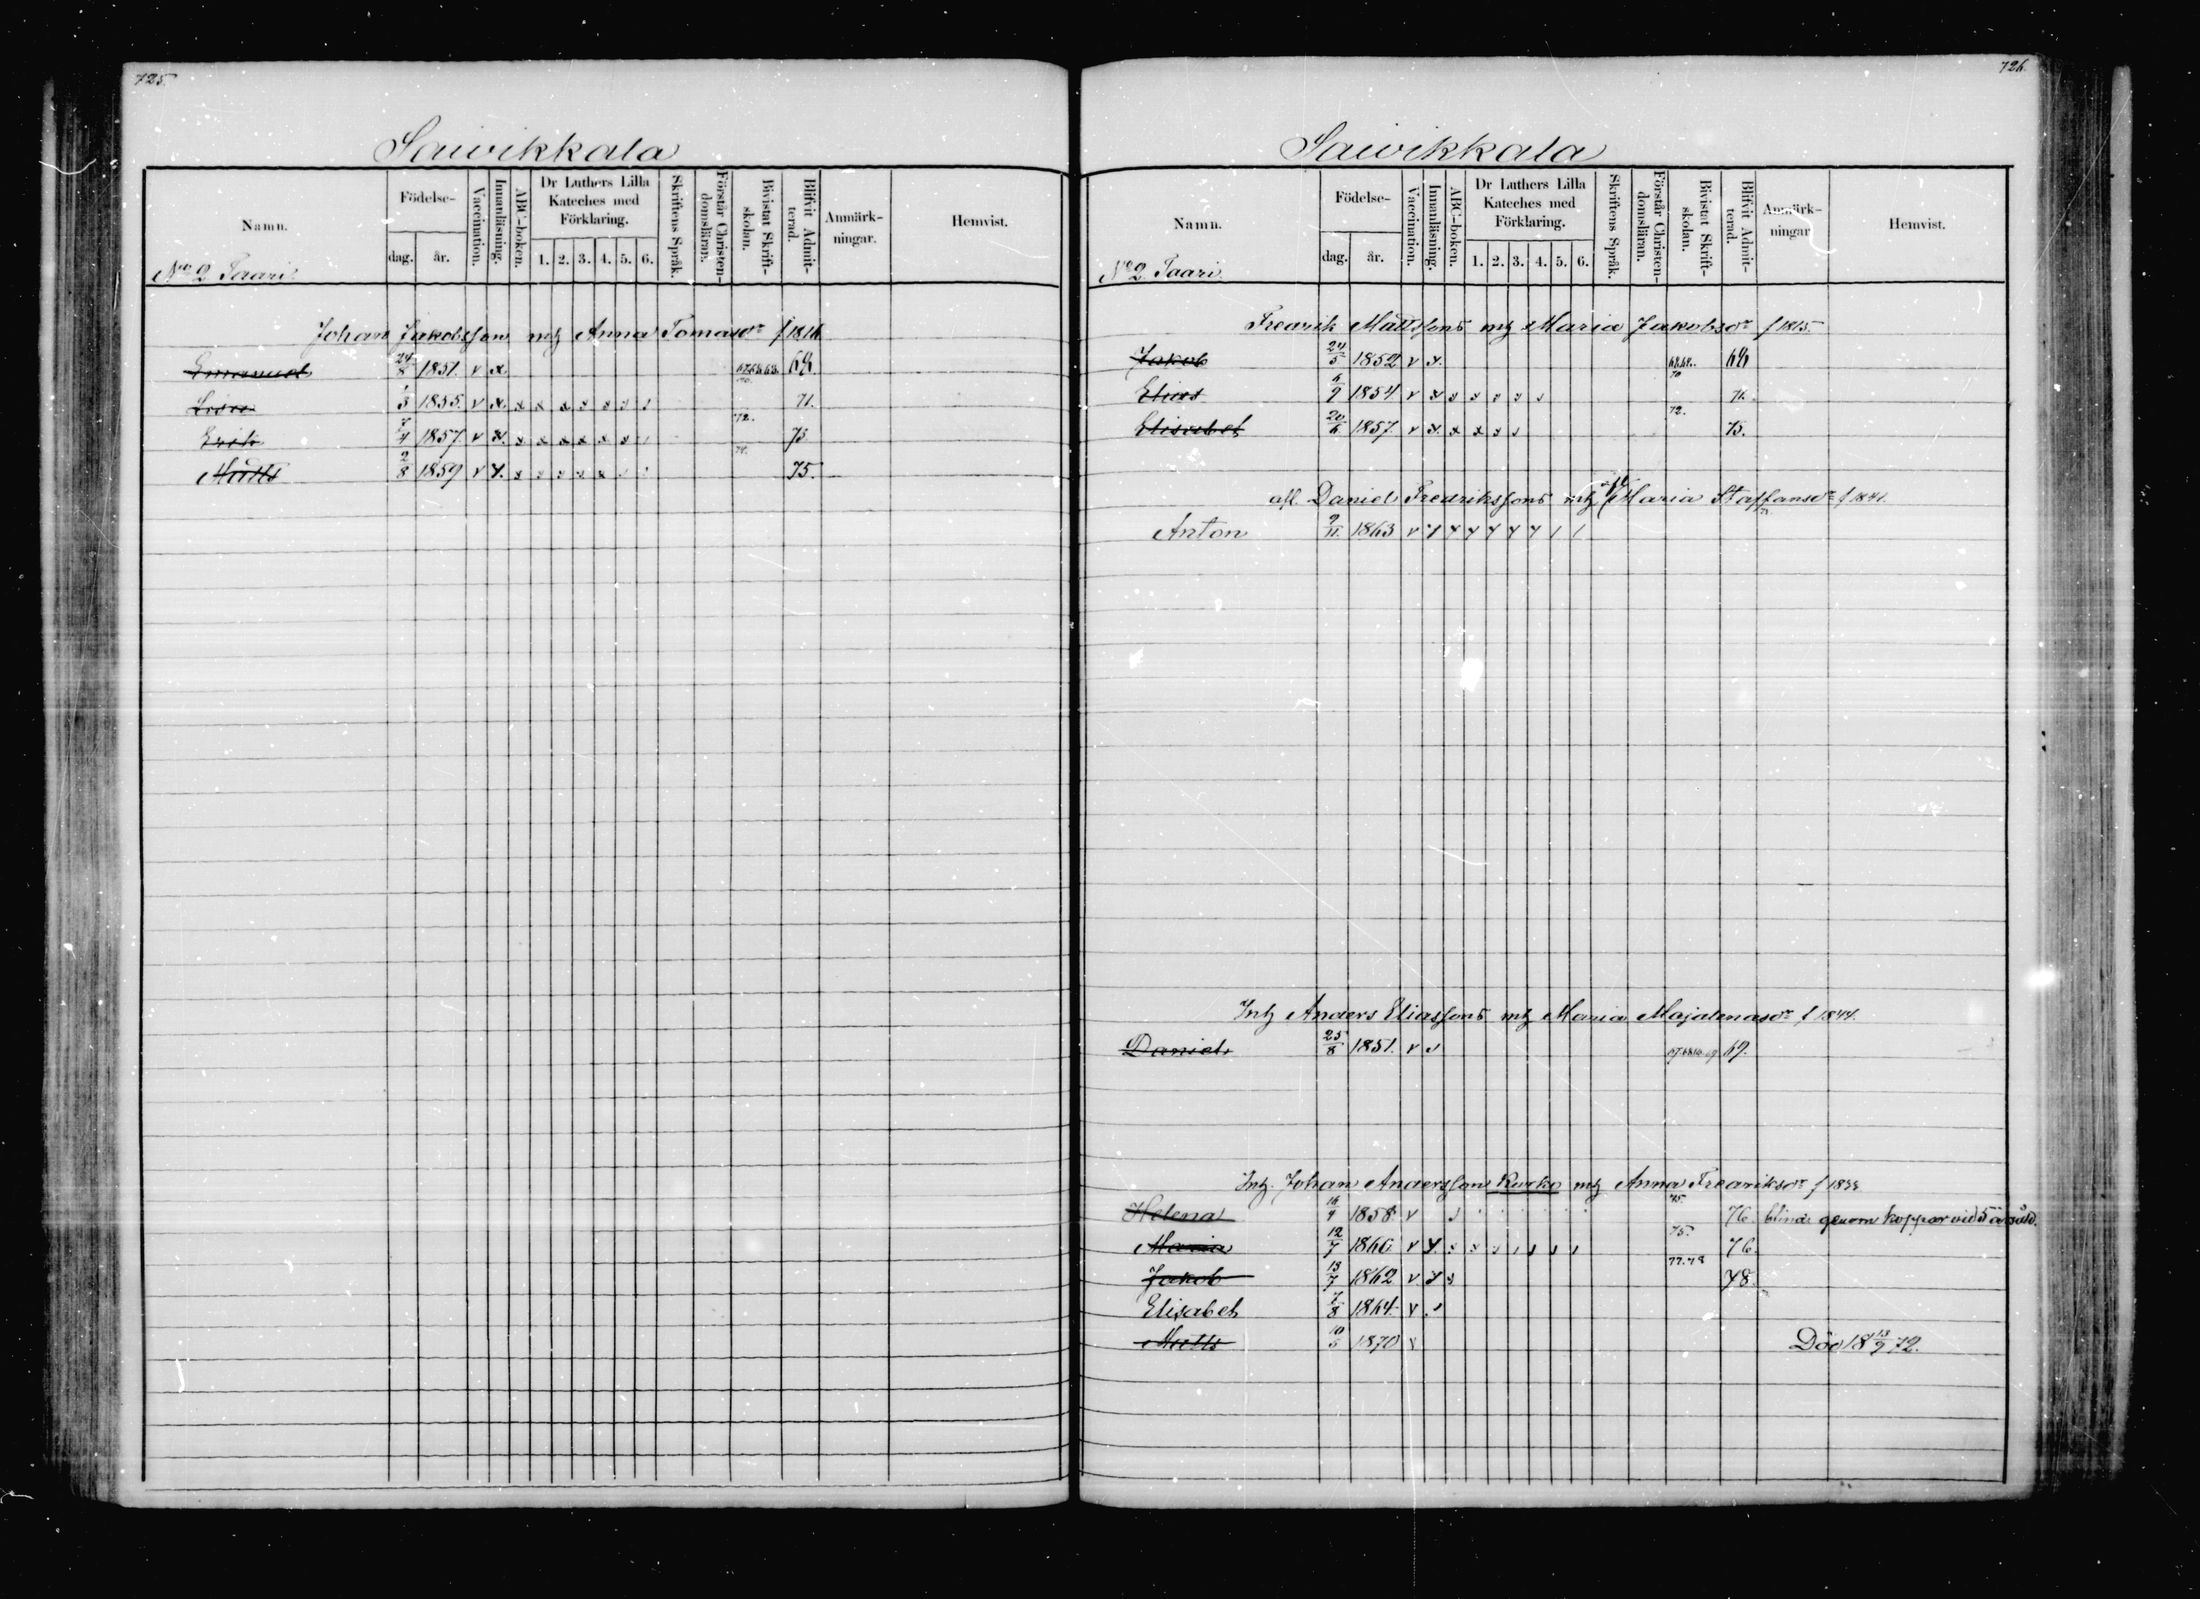 725.
Saivikkala
Namn.
Födelse-
dag.
år.
Vaccination.
Innanläsning.
ABC-boken.
Dr Luthers Lilla
Kateches med
Förklaring.
1. 2. 3. 4. 5. 6.
Skriftens Språk.
Förstår Christen-
domsläran.
Bivistat Skrift-
skolan.
Blifvit Admit-
terad.
Anmärk-
ningar.
Hemvist.
No 2 Taari
Johan Jakobsson mh Anna Tomasdr f 1816
Emanuel 24/8 1851. v x. 69.
3 1855. v x. x x x x x 71.
Erik 7/4 1857. v x. x x x x x x 73
Matts 2/8 1859 v x. x x x x x 75.
726.
Saivikkala
Namn.
Födelse-
dag.
år.
Vaccination.
Innanläsning.
ABC-boken.
Dr Luthers Lilla
Kateches med
Förklaring.
1. 2. 3. 4. 5. 6.
Skriftens Språk.
Förstår Christen-
domsläran.
Bivistat Skrift-
skolan.
Blifvit Admit-
terad.
Anmärk-
ningar
Hemvist.
No 2 Taari.
Fredrik Mattssons mh Maria Jakobsdr f 1815.
Jakob 24/5 1852 v x. 70
Elias 6/9 1854 v x 71.
Elisabet 20/6 1857 v x. x x 72. 75.
afl. Daniel Fredrikssons mh Maria Staffansdr f 1841.
Anton 9/11. 1863 v x x x x x x / /
Inh Anders Eliassons mh Maria Majalenasdr f 1844.
Daniel 25/8 1851. v 69.
Inh. Johan Andersson Kurko mh Anna Fredriksdr f 1833
Helena 16/9 1858 v 75. 76. blind genom koppor vid 5 års åld.
Maria 12/7 1860. v x. 75. 76.
Jakob 13/7 1862 v. x x 77.78 78.
Elisabet 7/8 1864 v
Matts 10/5 1870 v Död 18 13/9 72.